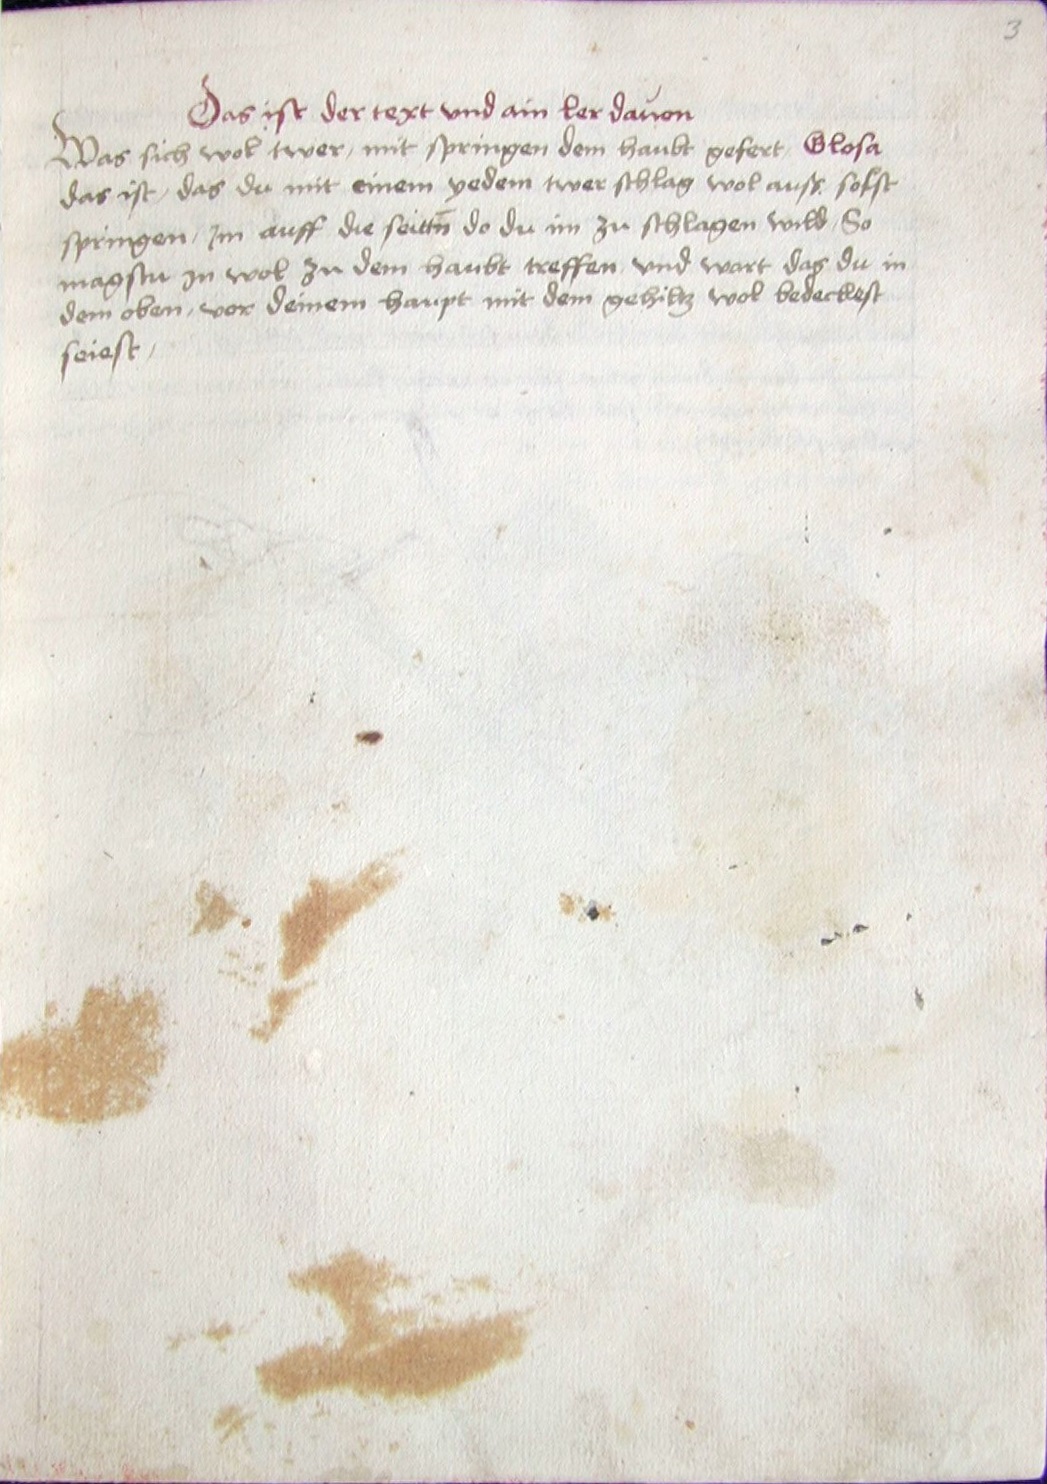 3
Das ist der text vnd ain ler dauon
Was sich wol twer / mit springen dem haubt gefert Glosa
das ist / das du mit einem yedem twer schlag wol auß solst
springen / Im auff die seittñ do du im zu schlagen wild / So
magstu In wol zu dem haubt treffen vnd wart das du in
dem oben / vor deinem haupt mit dem gehiltz wol bedeckest
seiest /